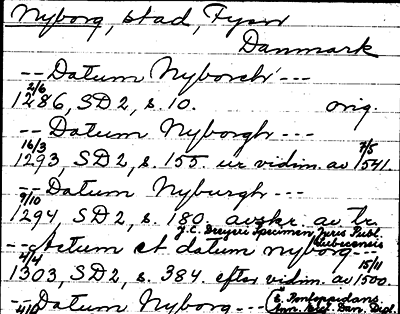 Nyborg, stad, Fyen
Danmark
-- Datum Nyborch ---
2/6
1286, SD 2, s. 10. orig.
-- Datum Nyborgh ---
16/3 7/5
1293, SD 2, s. 155 ur vidim. av 1541.
-- Datum Nyburgh ---
9/10
1294, SD 2, s. 180. avskr. av tr.
J.C. Dreyeri Specimen Juris Publ.
Lubecensis
-- Actum et datum nyborg --
4/4 15/11
1303, SD 2, s. 384. efter vidim. av 1500.
-- Datum Nyborg --- (E. Pontoppidans
4/10 Ann. Eccl. Dan. Dipl.